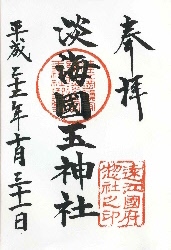 奉拝
淡海國玉神社
平成二十二年十月三十一日
遠江國府
惣社之印